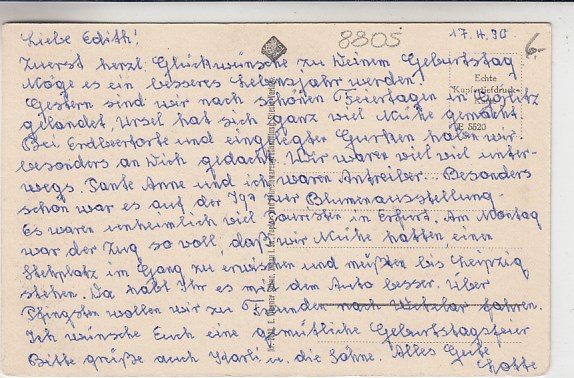 8805
17.4.90
6,-
Liebe Edith!
Zuerst herzl. Glückwünsche zu Deinem Geburtstag
Möge es ein besseres Lebensjahr werden
Gestern sind wir nach schönen Feiertagen in
gelandet, Ursel hat sich ganz viel Mühe gemacht
Bei Erdbeertorte und eingelegter Gurken haben wir
besonders an Dich gedacht. Wir waren viel viel unter-
wegs. Tante Anne und ich waren Antreiber. Besonders
schön war es auf der Iga zur Blumenausstellung.
Es waren unheimlich viel Touristen in Erfurt. Am Montag
war der Zug so voll, daß wir Mühe hatten, einen
Stehplatz im Gang zu erwischen und mußten bis Leipzig
stehen. Da habt Ihr es mit dem Auto besser. Über
Pfingsten wollen wir zu Freunden nach Wetzlar fahren.
Ich wünsche Euch eine gemütliche Geburtstagsfeier
Bitte grüße auch Karli u. die Söhne. Alles Gute
Lotte
Echte
Kupfertiefdruck-
Karte
5520